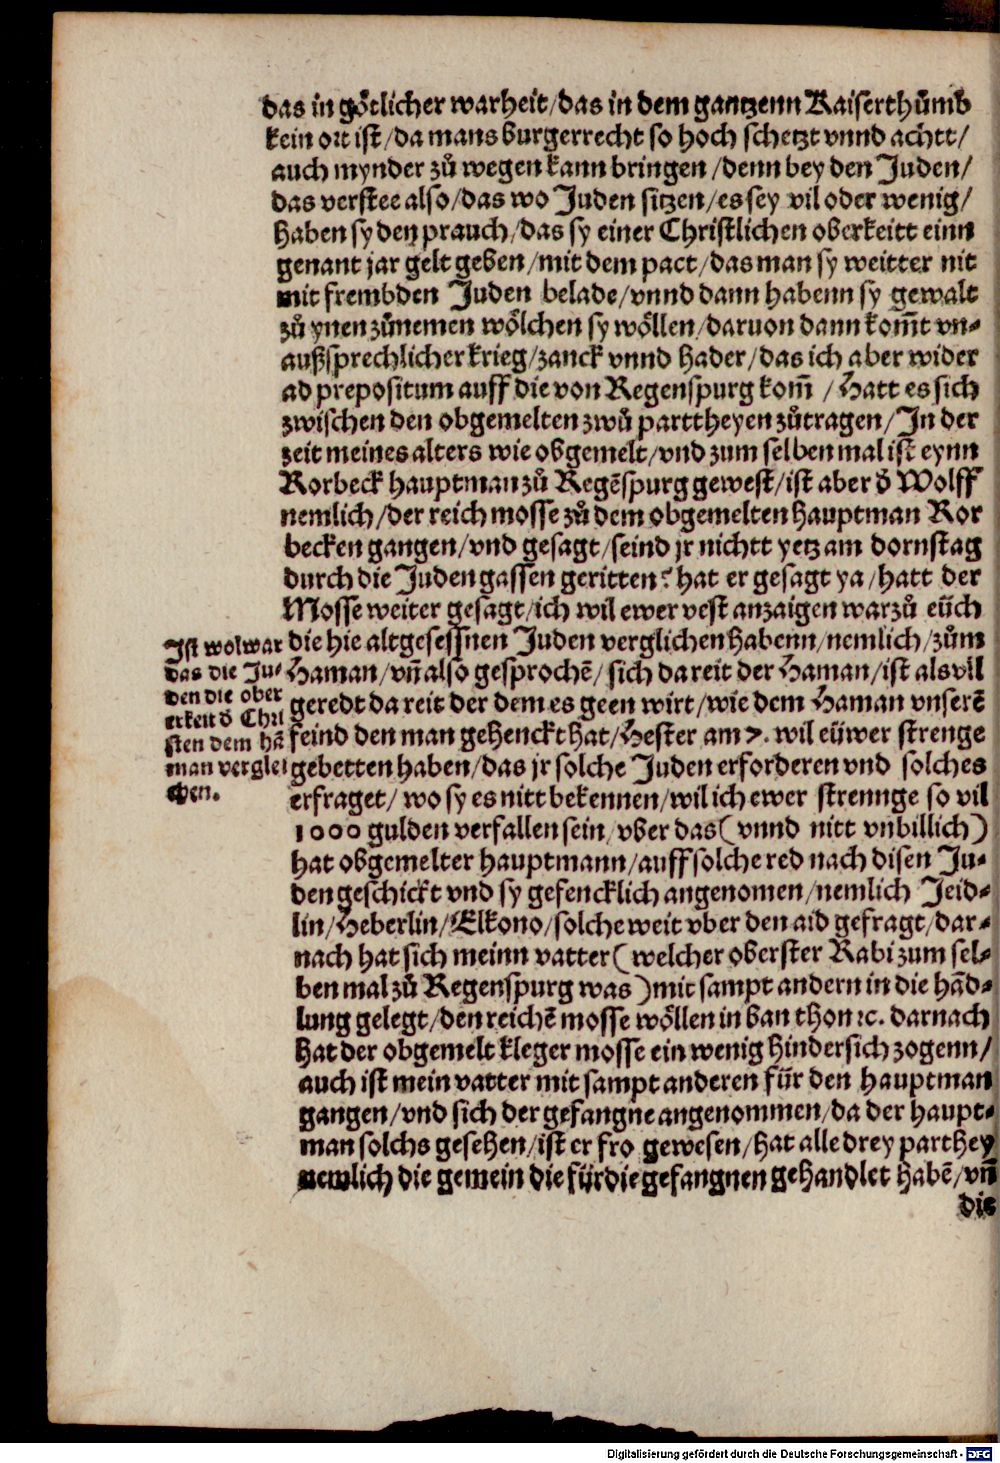 das in götlicher warheit/das in dem gantzenn Kaiserthůmb
kein ort ist/da mans burgerrecht so hoch schetzt vnnd achtt/
auch mynder zů wegen kann bringen/denn bey den Juden/
das verstee also/das wo Juden sitzen/es sey vil oder wenig/
haben sy den prauch/das sy einer Christlichen oberkeitt einn
genant jar gelt geben/mit dem pact/das man sy weitter nit
mit frembden Juden belade/vnnd dann habenn sy gewalt
zů ynen zůnemen wölchen sy wöllen/daruon dann kom̃t vn⸗
außsprechlicher krieg/zanck vnnd hader/das ich aber wider
ad prepositum auff die von Regenspurg kom̃/Hatt es sich
zwischen den obgemelten zwů parttheyen zůtragen/In der
zeit meines alters wie obgemelt/vnd zum selben mal ist eynn
Rorbeck hauptman zů Regẽspurg gewest/ist aber d̕ Wolff
nemlich/der reich mosse zů dem obgemelten hauptman Ror
becken gangen/vnd gesagt/seind jr nichtt yetz am dornstag
durch die Juden gassen geritten? hat er gesagt ya/hatt der
Mosse weiter gesagt/ich wil ewer vest anzaigen warzů eüch
die hie altgesessnen Juden verglichen habenn/nemlich/zům
Haman/vñ also gesprochẽ/sich da reit der Haman/ist als vil
geredt da reit der dem es geen wirt/wie dem Haman vnserẽ
feind den man gehenckt hat/Hester am 7. wil eüwer strenge
gebetten haben/das jr solche Juden erforderen vnd solches
erfraget/wo sy es nitt bekennen/wil ich ewer strennge so vil
1000 gulden verfallen sein/vber das (vnnd nitt vnbillich)
hat obgemelter hauptmann/auff solche red nach disen Ju⸗
den geschickt vnd sy gefencklich angenomen/nemlich Jeid⸗
lin/Heberlin/Elkono/solche weit vber den aid gefragt/dar⸗
nach hat sich meinn vatter (welcher oberster Rabi zum sel⸗
ben mal zů Regenspurg was) mit sampt andern in die hãd⸗
lung gelegt/den reichẽ mosse wöllen in ban thon ꝛc. darnach
hat der obgemelt kleger mosse ein wenig hindersich zogenn/
auch ist mein vatter mit sampt anderen für den hauptman
gangen/vnd sich der gefangne angenommen/da der haupt⸗
man solchs gesehen/ist er fro gewesen/hat alle drey parthey
nemlich die gemein die für die gefangnen gehandlet habẽ/vñ
die
Ist wol war
das die Ju⸗
den die ober
erkeit d̕ Chri
sten dem hã
man verglei
chen.
Digitalisierung gefördert durch die Deutsche Forschungsgemeinschaft - DFG